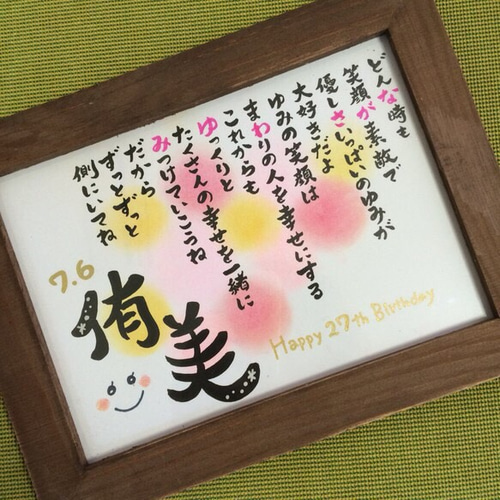 どんな時も
笑顔が素敵で
優しさいっぱいのゆみが
大好きだよ
ゆみの笑顔は
まわりの人を幸せにする
これからも
ゆっくりと
たくさんの幸せを一緒に
みつけていこうね
だから
ずっとずっと
側にいてね
7.6
侑美
Happy 27th Birthday